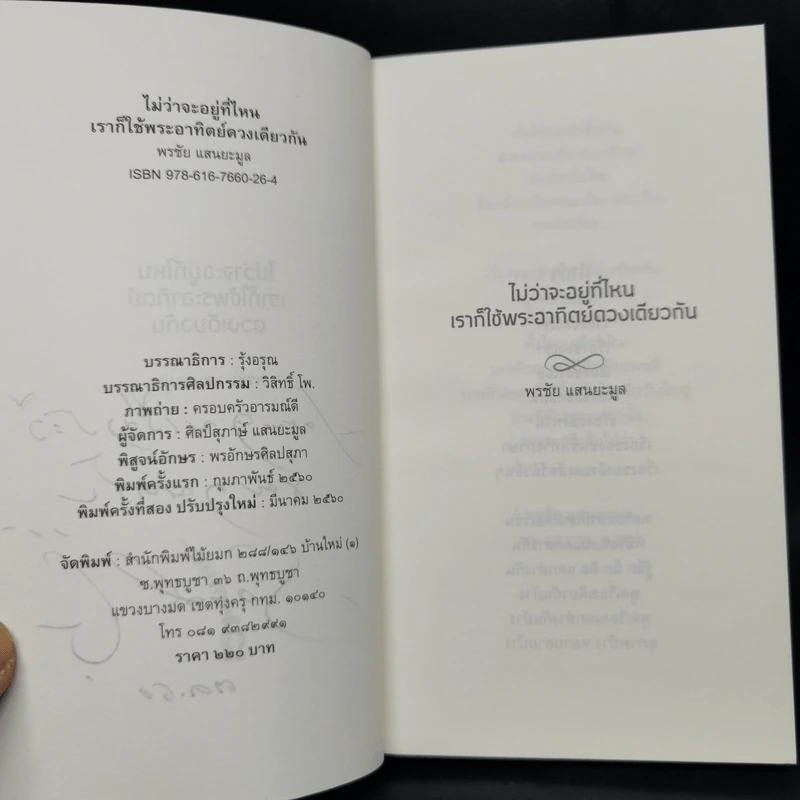 ไม่ว่าจะอยู่ที่ไหน
เราก็ใช้พระอาทิตย์ดวงเดียวกัน
พรชัย แสนยะมูล
ISBN 978-616-7660-26-4
บรรณาธิการ : รุ้งอรุณ
บรรณาธิการศิลปกรรม : วิสิทธิ์ โพ.
ภาพถ่าย : ครอบครัวอารมณ์ดี
ผู้จัดการ : ศิลป์สุภาษ์ แสนยะมูล
พิสูจน์อักษร : พรอักษรศิลปสุภา
พิมพ์ครั้งแรก : กุมภาพันธ์ ๒๕๖๐
พิมพ์ครั้งที่สอง ปรับปรุงใหม่ : มีนาคม ๒๕๖๐
จัดพิมพ์ : สำนักพิมพ์ไม้ยมก ๒๘๘/๑๔๖ บ้านใหม่ (๑)
ซ.พุทธบูชา ๓๖ ถ.พุทธบูชา
แขวงบางมด เขตทุ่งครุ กทม. ๑๐๑๔๐
โทร ๐๘๑ ๙๓๘๒๙๙๑
ราคา ๒๒๐ บาท
ไม่ว่าจะอยู่ที่ไหน
เราก็ใช้พระอาทิตย์ดวงเดียวกัน
พรชัย แสนยะมูล